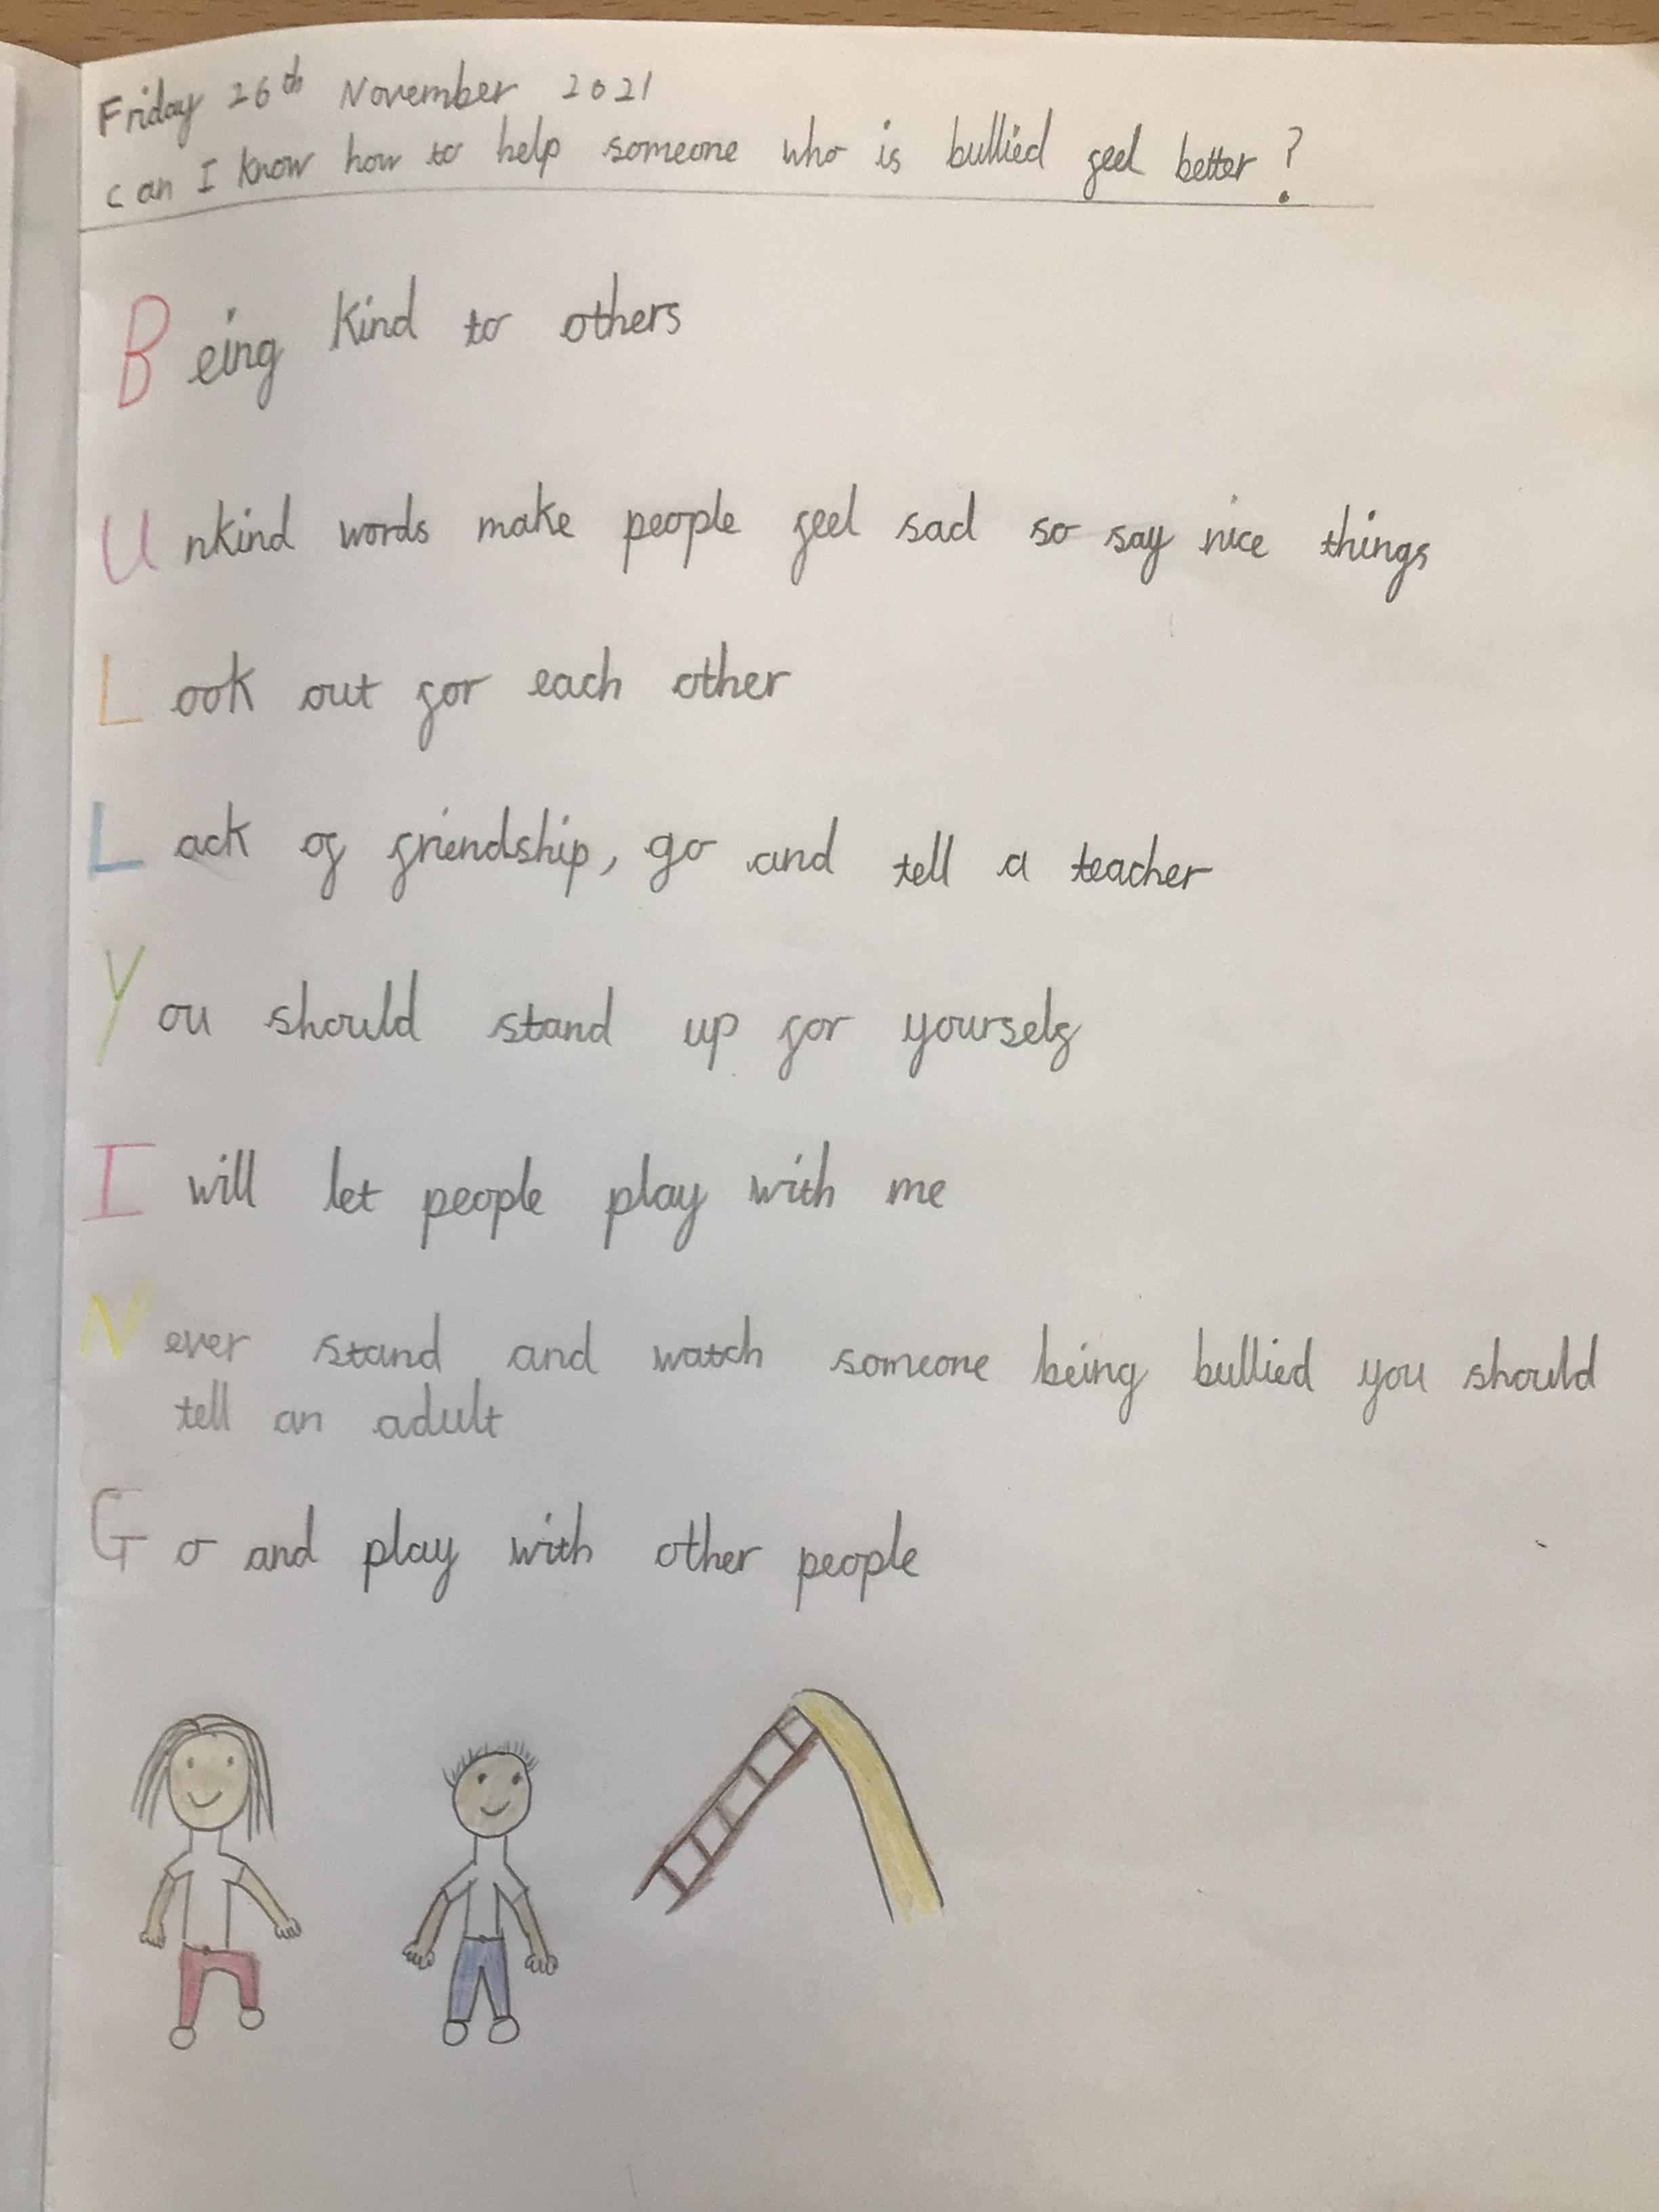 Friday 26th November 2021
can I know how to help someone who is bullied feel better?
Being kind to others
Unkind words make people feel sad so say nice things
Look out for each other
Lack of friendship, go and tell a teacher
You should stand up for yourself
I will let people play with me
Never stand and watch someone being bullied you should
tell an adult
Go and play with other people